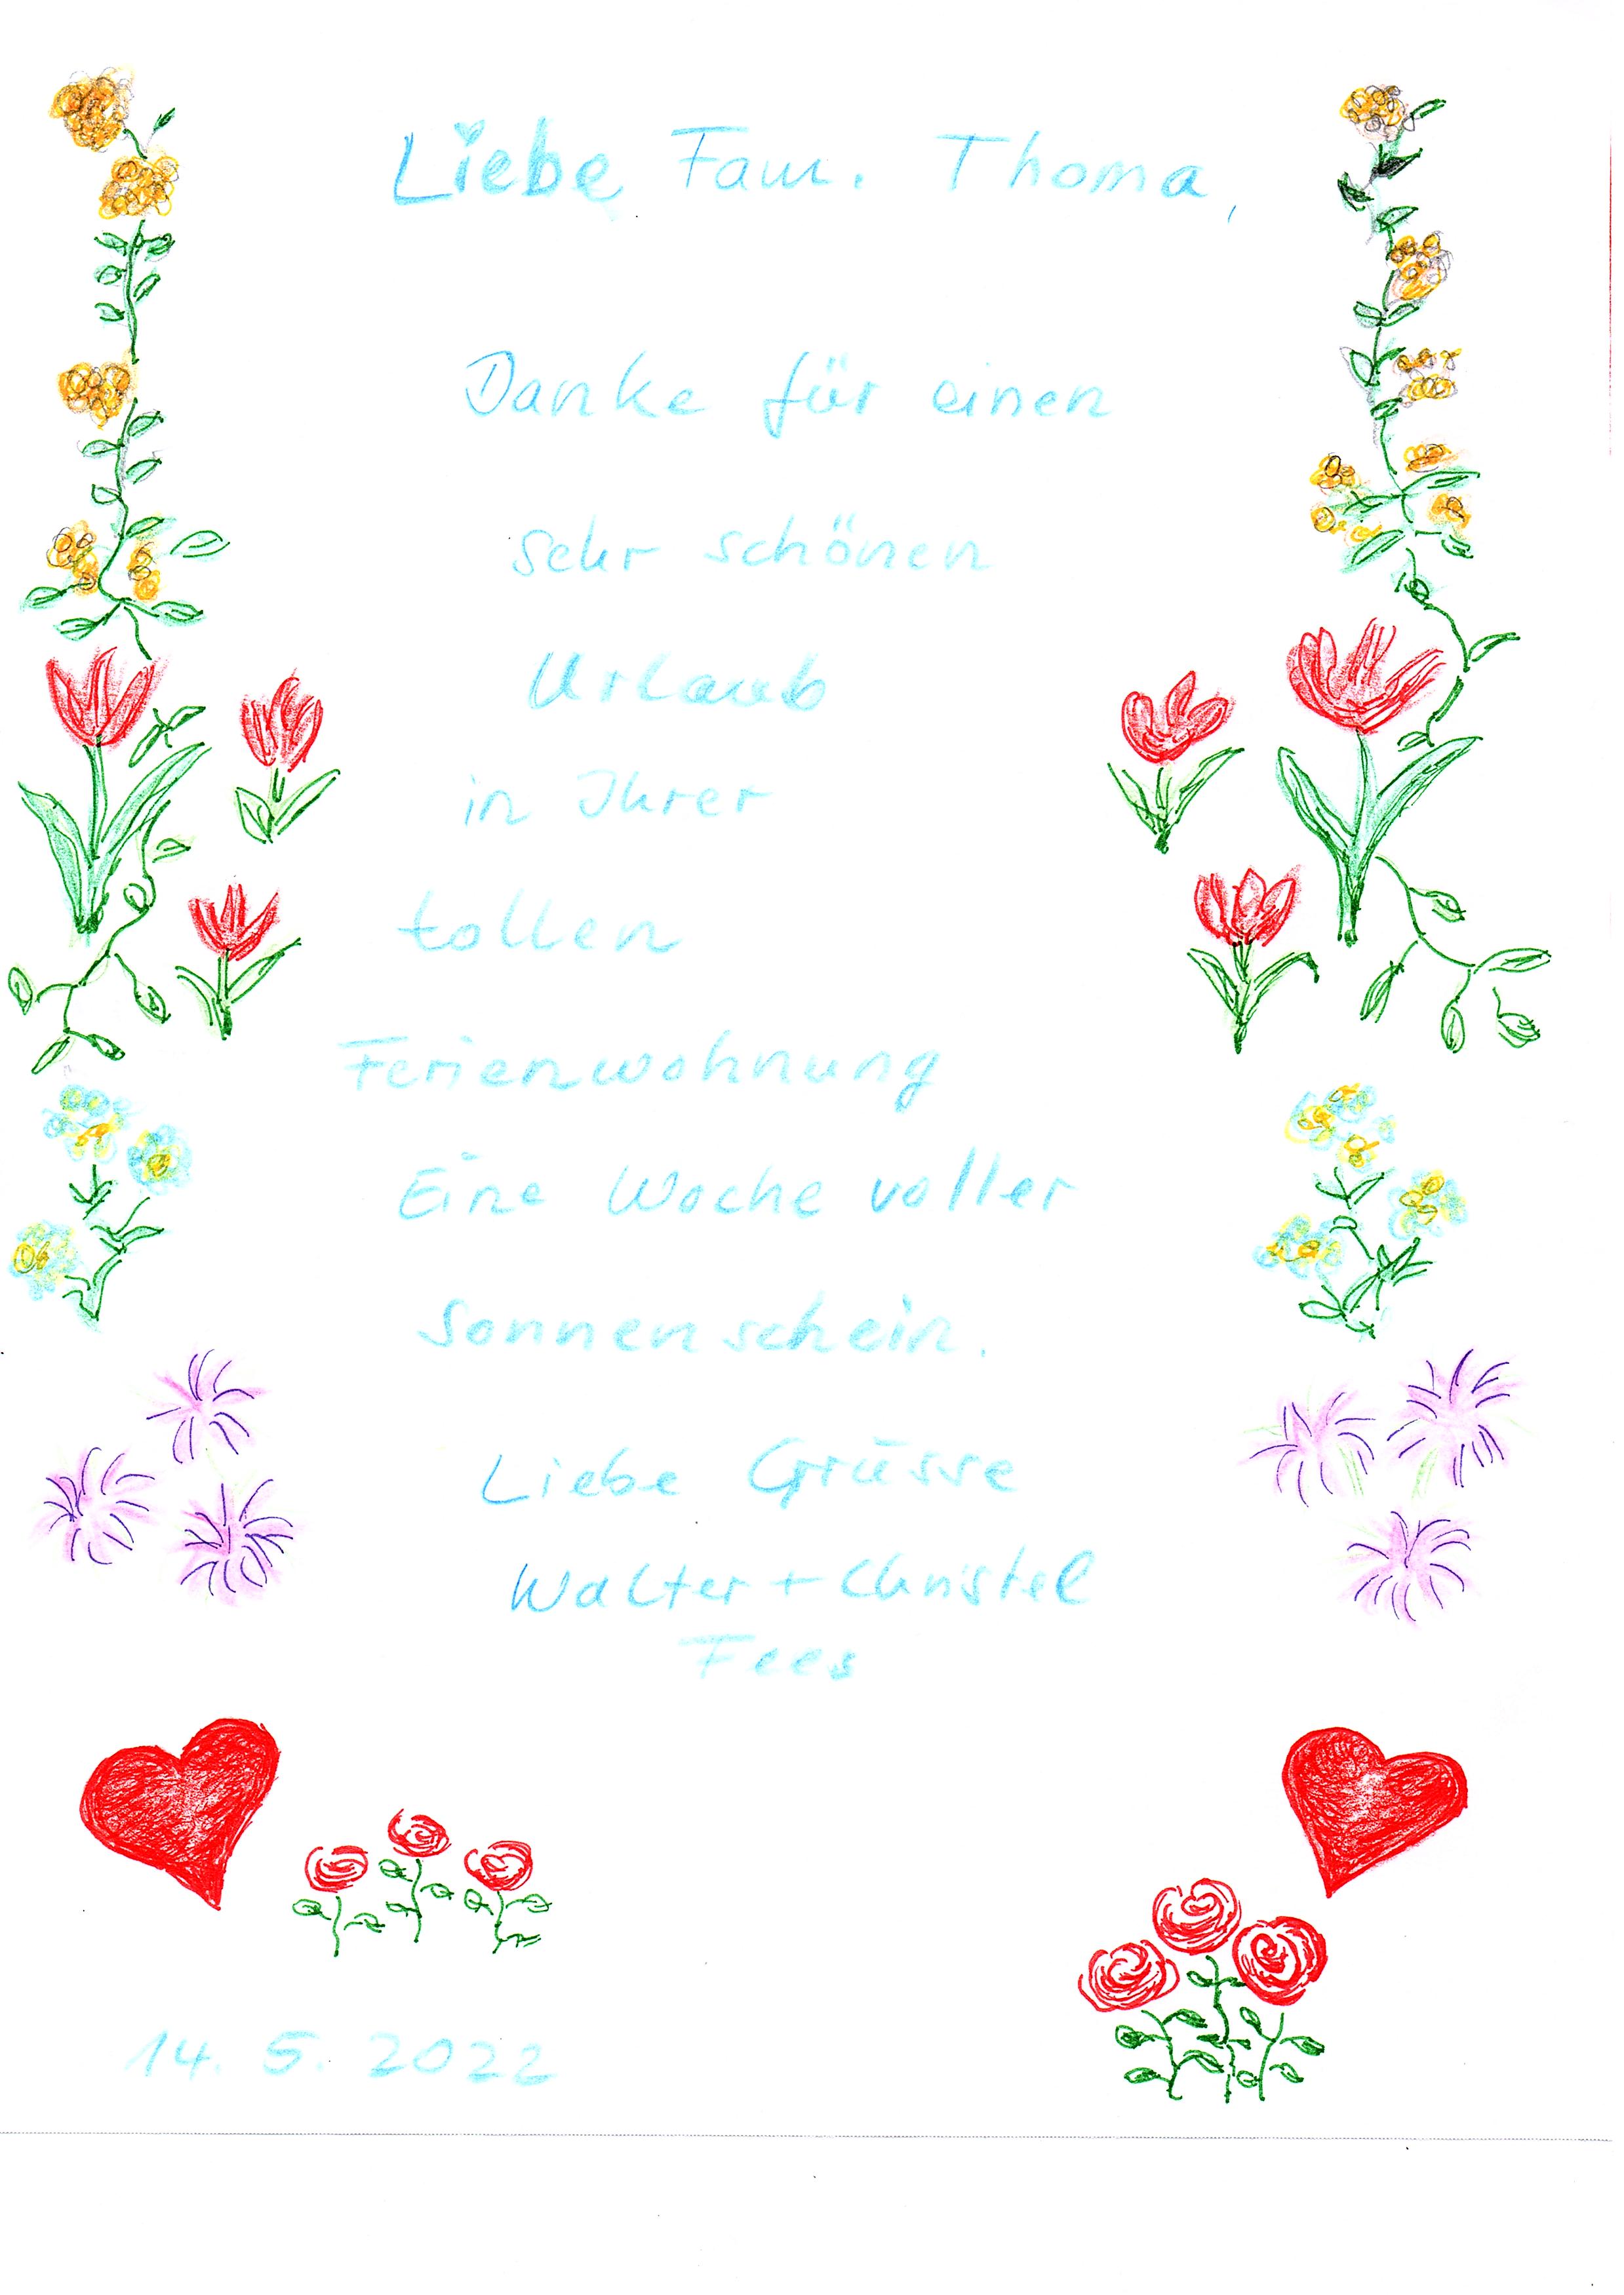 Liebe Fam. Thoma,
Danke für einen
sehr schönen
Urlaub
in Ihrer
tollen
Ferienwohnung
Eine Woche voller
Sonnenschein.
Liebe Grüsse
Walter + Christel
Fees
14. 5. 2022